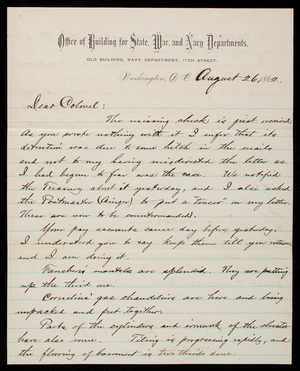 Office of Building for State, War, and Navy Departments.
OLD BUILDING, NAVY DEPARTMENT, 17TH STREET.
Washington, D. C. August 26, 1882.
Dear Colonel:
The missing check is just received.
As you wrote nothing with it I infer that its
detention was due to some hitch in the mails
and not to my having misdirected the letter as
I had begun to fear was the case. We notified
the Treasury about it yesterday, and I also asked
the Postmaster (Ainger) to put a tracer on my letter.
These are now to be countermanded.
Your pay accounts came day before yesterday.
I understood you to say keep them till you return
and I am doing it.
mantels are splendid. They are putting
up the third one.
Cornelius' gas chandeliers are here and being
unpacked and put together.
Parts of the cylinders and ironwork of the elevator
have also come. Tiling is progressing rapidly, and
the flooring of basement is two thirds done.